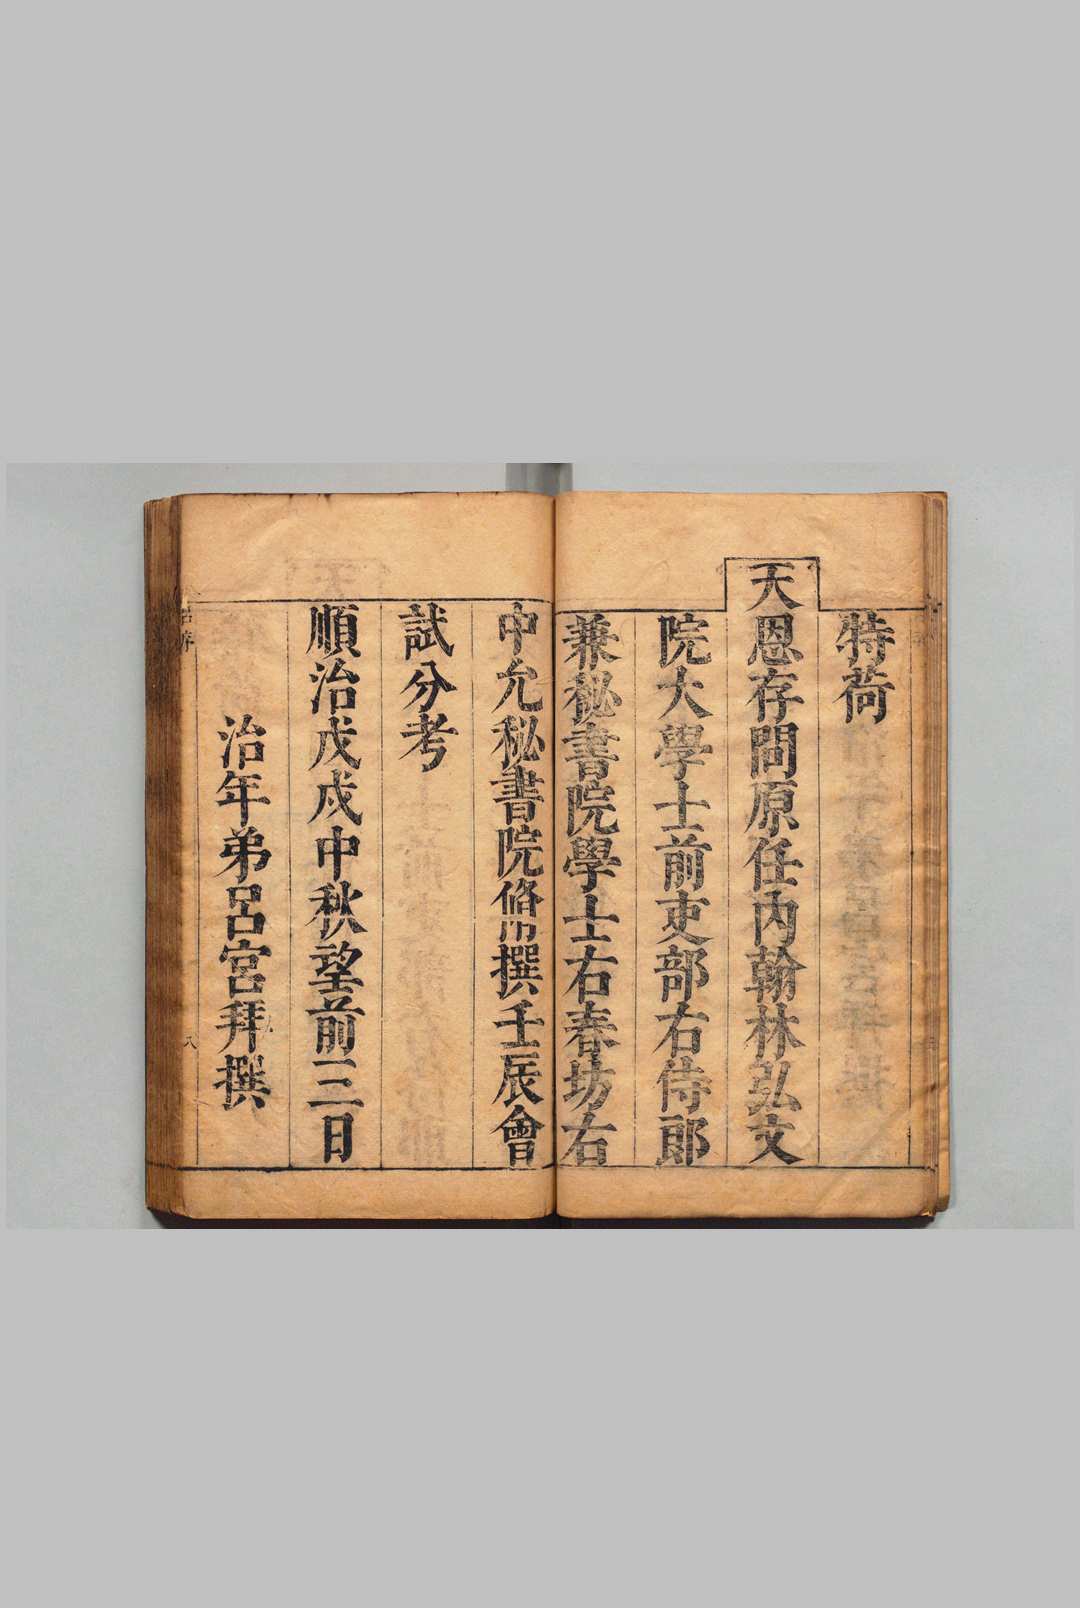 特荷
天恩存問原任內翰林弘文
院大學士前吏部右侍郎
兼秘書院學士右春坊右
中允秘書院脩撰壬辰會
試分考
順治戊戌中秋望前三日
治年弟呂宮拜撰
呂序
八